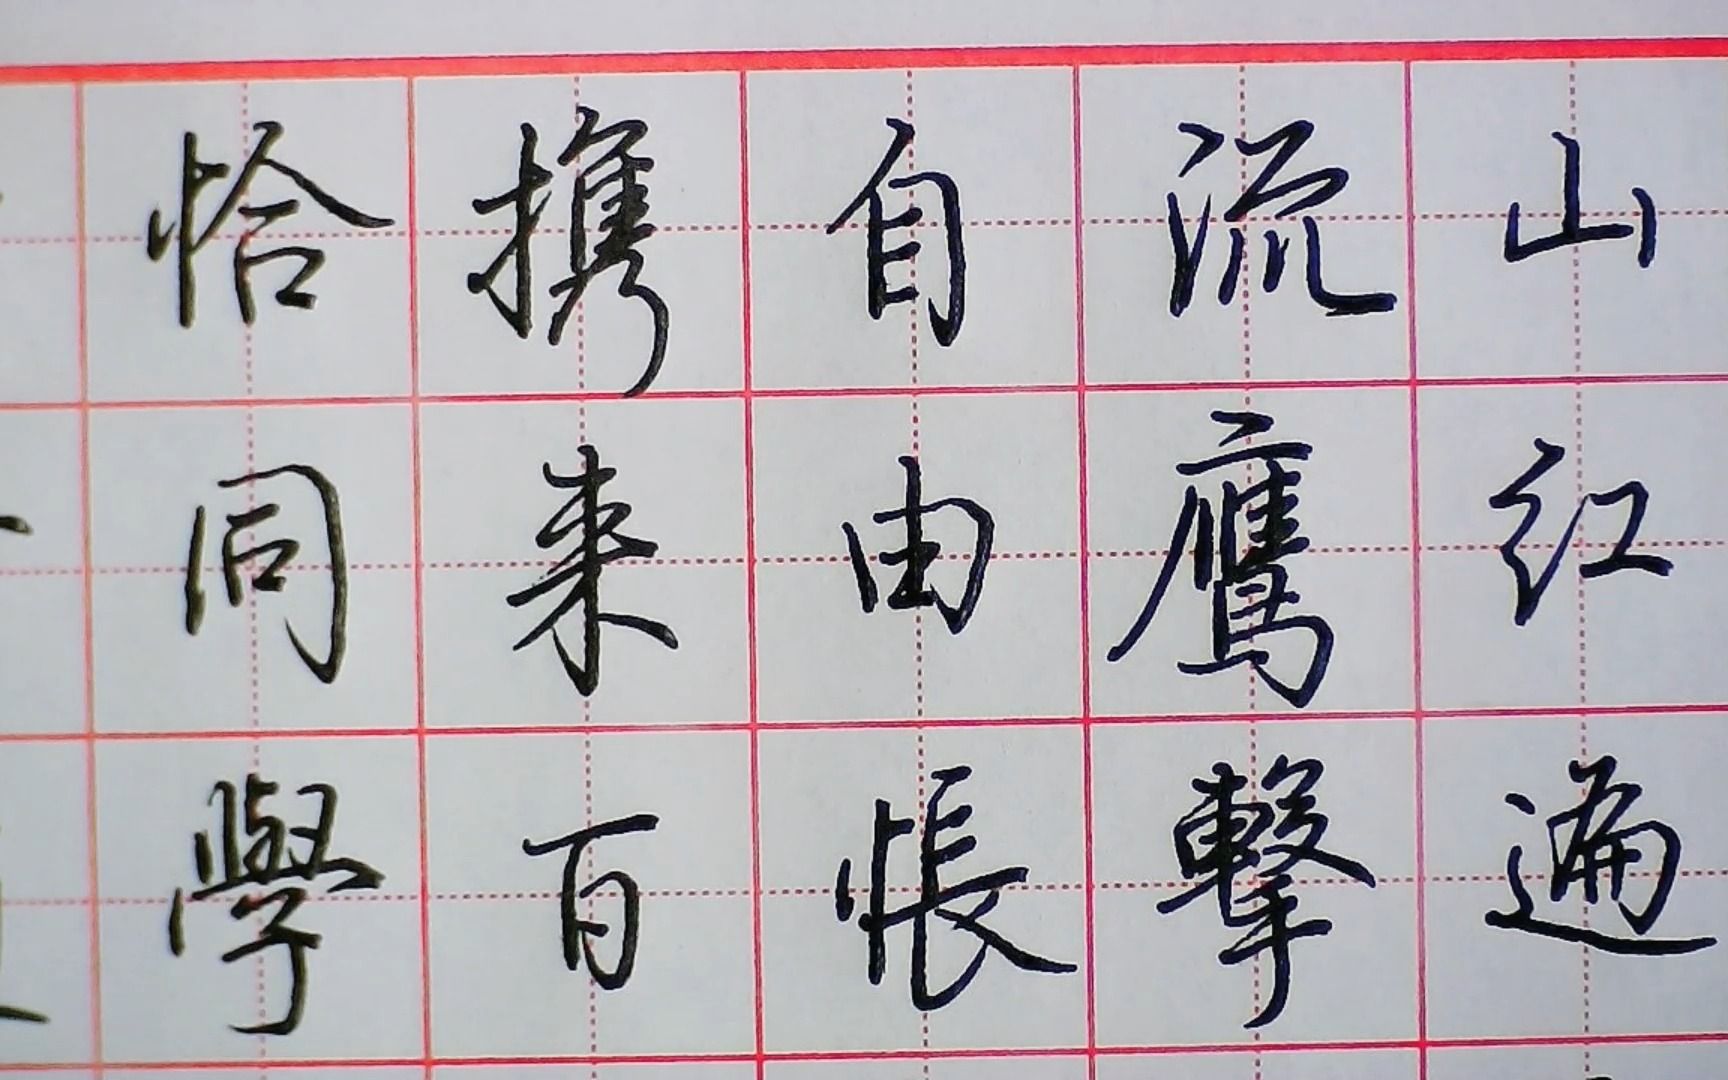 山红遍
流鹰擊
自由悵
携来百
恰同學